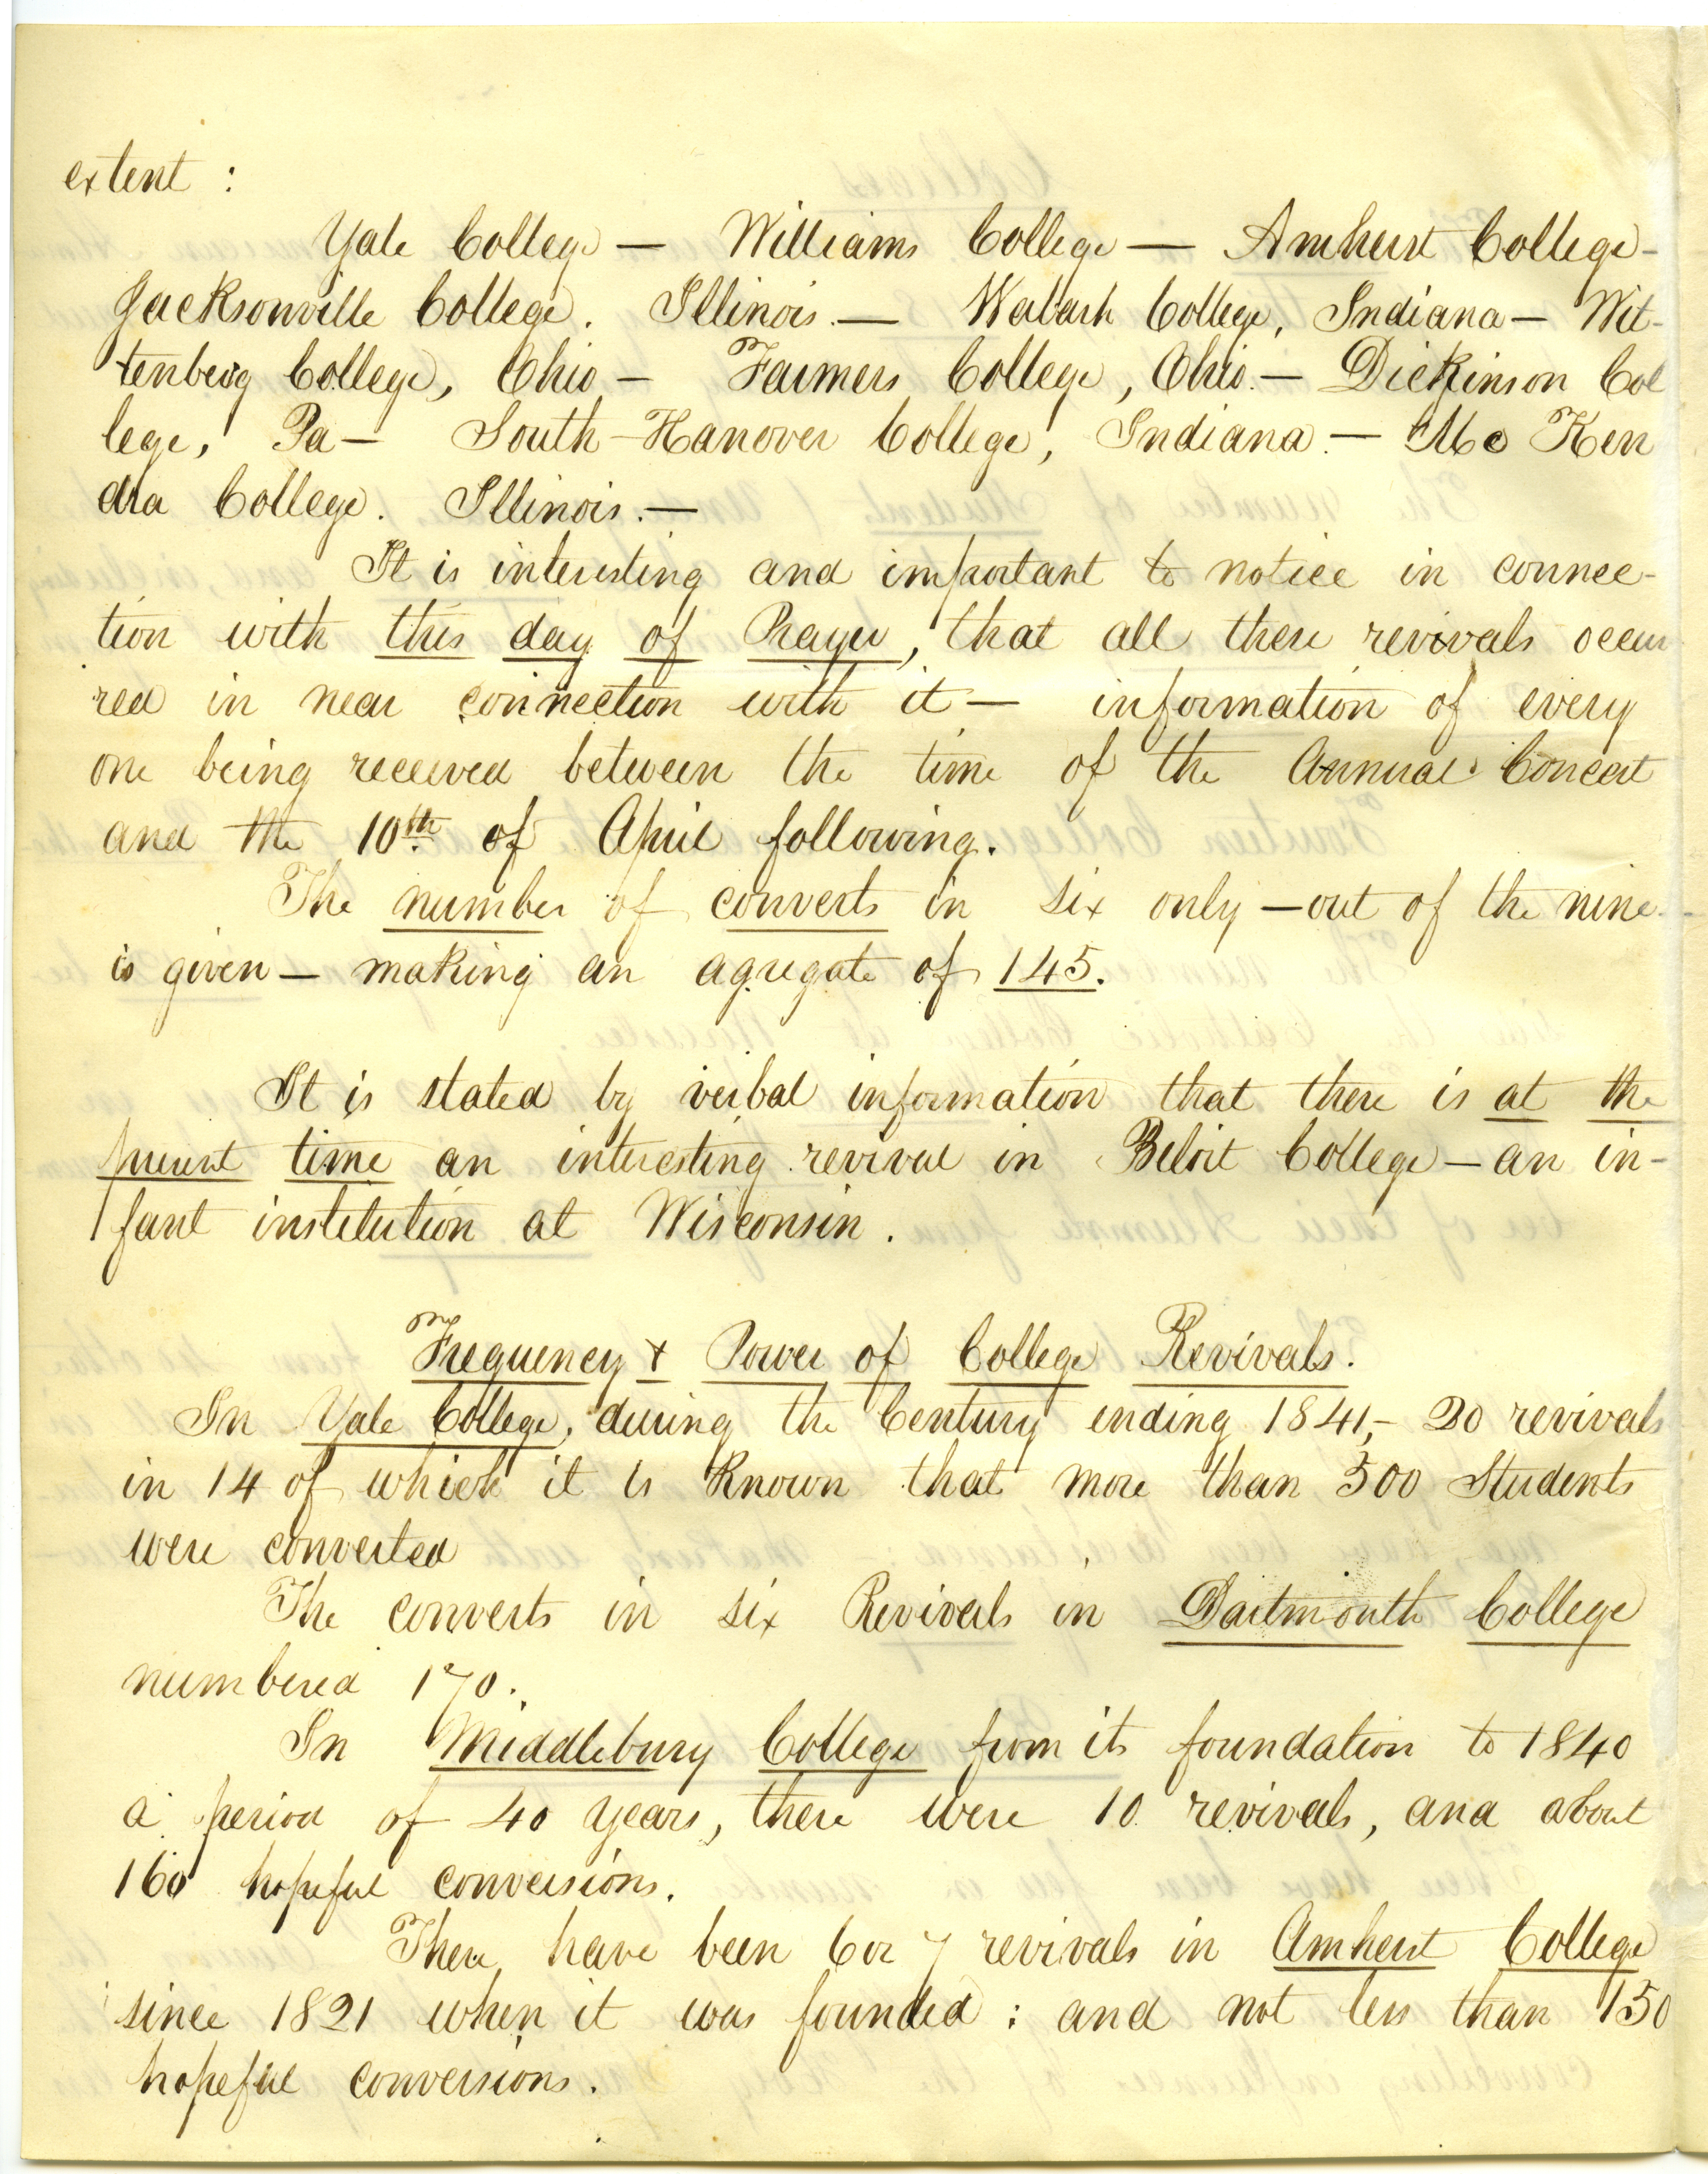 extent :
Yale College — Williams College — Amherst College -
Jacksonville College. Illinois. — Wabash College, Indiana — Wit-
tenberg College, Ohio — Farmers College, Ohio. — Dickinson Col
lege, Pa — South-Hanover College, Indiana. — Mc Ken
dra College. Illinois. —
It is interesting and important to notice in connec-
tion with this day of Prayer, that all these revivals occur
red in near connection with it — information of every
one being received between the time of the Annual Concert
and the 10th. of April following.
The number of converts in six only — out of the nine -
is given — making an agregate of 145.
It is stated by verbal information that there is at the
present time an interesting revival in Beloit College — an in-
fant institution at Wisconsin.
Frequency & Power of College Revivals.
In Yale College, during the Century ending 1841, - 20 revivals
in 14 of which it is known that more than 500 Students
were converted
The converts in six Revivals in Dartmouth College
numbered 170.
In Middlebury College from its foundation to 1840
a period of 40 years, there were 10 revivals, and about
160 hopeful conversions.
There have been 6 or 7 revivals in Amherst College
since 1821 when it was founded : and not less than 150
hopeful conversions.